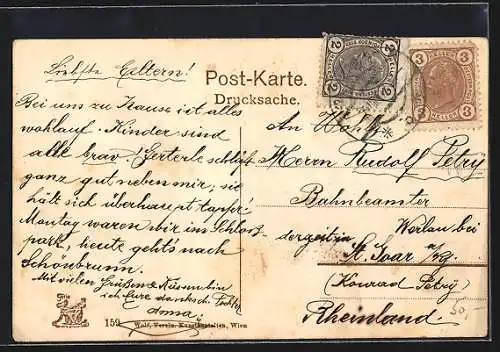 Liebste Eltern!
Post-Karte.
Drucksache.
Bei uns zu Hause ist alles
wohlauf. Kinder sind
alle brav! Gerterle schläft
ganz gut neben mir; sie
hält sich überhaupt tapfer
Montag waren wir im Schloss-
park, heute geht's nach
Schönbrunn.
Mit vielen Grüßen & Küssen bin
ich Eure dankb. Tochter
Anna.
An Wohlg.
Herrn Rudolf Petry
Bahnbeamter
derzeit in Werlau bei
St. Goar a/Rh.
(Konrad Petry)
Rheinland.
50.-
159
Wolf, Verein. Kunstanstalten, Wien
2 2
2
3 3
HELLER
3 3